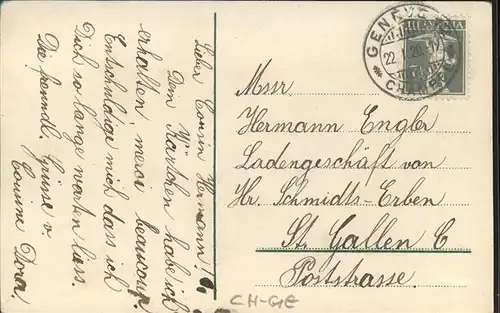 Lieber Cousin Hermann!
Dein Kärtchen habe ich
erhalten, merci beaucoup.
Entschuldige mich das ich
Dich so lange warten lass.
Die freundl. Grüsse v.
Cousine Dora.
GENÈVE
22.I.20.
CHAMPEL
HELVETIA
Mssr.
Hermann Engler
Ladengeschäft von
Hr. Schmidts-Erben
St. Gallen C
Poststrasse.
CH-GE